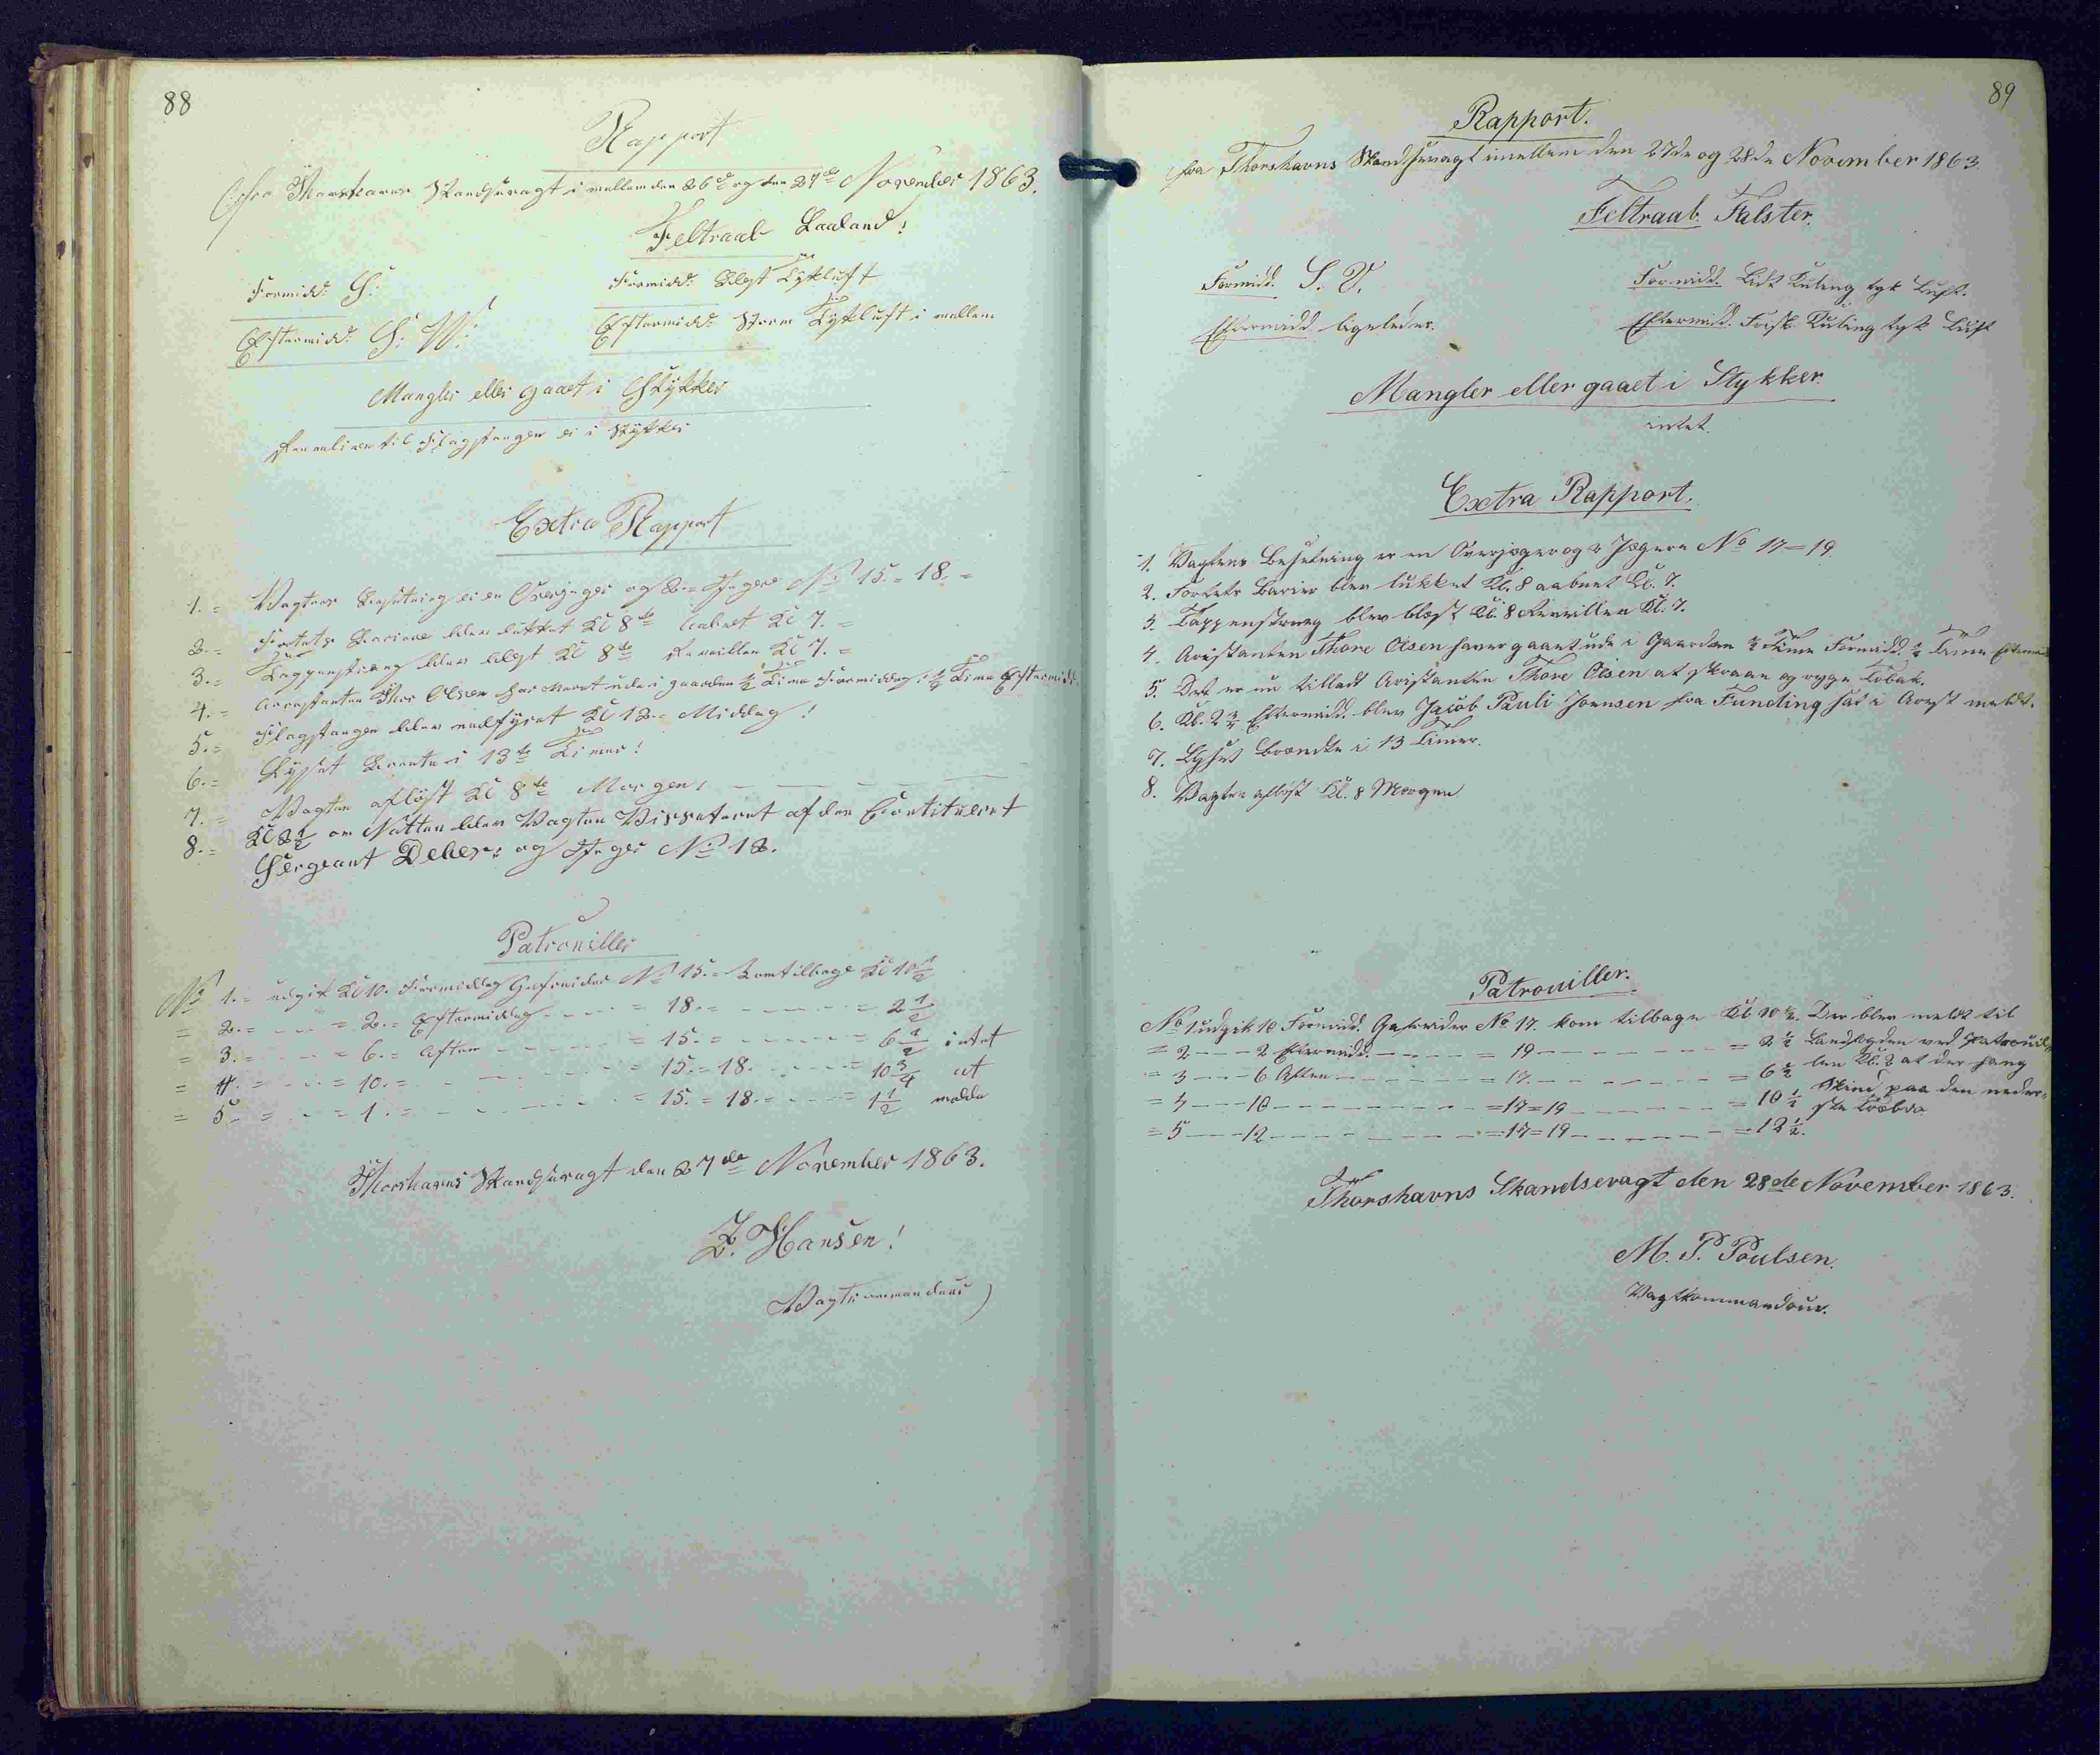 88
Rapport
fra Thorshavns Skandsevagt i mellem den 26de og den 27de November 1863.
Feltraab Laaland!
Formidd: S:
Formidd: Blæst Tykluft
Eftermidd: S: W:
Eftermidd: Storm Tykluft i mellem
Mangler eller gaaet i Stykker
til Flagstangen er i Stykker
Extra Rapport
1. = Vagtens Besetning er en Overjæger og 2 = Jægere No 15 = 18. =
2. = Fortets Bariere blev lukket Kl 8te aabnet Kl 7. =
3. = Tappenstræg blev blæst Kl 8te Reveillen Kl 7. =
4. = Arrestanten Thor Olsen har været ude i gaarden ½ Time Formiddag: ½ Time Eftermidd:
5. = Flagstangen blev nedfyret Kl 12. = Middag!
6. = Lyset Brænte i 13te Timer!
7. = Vagten afløst Kl 8te Morgen:
8. = Kl 2½ om Natten blev Vagten Visiteret af den Constitueret
Sergeant Debes: og Jæger No 18.
Patrouiller
No 1. = udgik Kl 10. Formiddag Gefreider No 15. = kom tilbage Kl 10½
= 2. = - - = 2. = Eftermiddag - - - = 18. = - - - = 2½
= 3. = - - = 6. = Aften - - - = 15. = - - - = 6½ intet
= 4. = - - = 10. = - - - = 15. = 18. - - - = 10¾ at
= 5. = - - = 1. = - - - = 15. = 18. = - - - = 1½ melde
Thorshavns Skandsevagt den 27de November 1863.
Z. Hansen!
Vagtcommandeur
89
Rapport.
fra Thorshavns Skandsevagt imellem den 27de og 28de November 1863.
Feltraab. Falster.
Formidd. S. V.
Formidd. Lidt Kuling tyk Luft.
Eftermidd. ligeledes.
Eftermidd. Frisk Kuling tyk Luft
Mangler eller gaaet i Stykker.
intet.
Extra Rapport.
1. Vagtens Besetning er en Overjæger og 2 Jægere No 17=19
2. Fortets Barier blev lukket Kl. 8 aabnet Kl. 7.
3. Tappenstræg blev blæst Kl. 8 Reveillen Kl. 7.
4. Aristanten Thore Olsen haver gaaet ude i Gaarden ½ Time Formidd. ½ Time Eftermid
5. Det er nu tilladt Aristanten Thore Olsen at skraae og ryge Tobak.
6. Kl. 2¾ Eftermidd. blev Jacob Pauli Joensen fra Funding sat i Arest meldt.
7. Lyset brændte i 13 Timer.
8. Vagten afløst Kl. 8 Morgen
Patrouiller.
No 1 udgik 10 Formidd. Gefreider No 17. kom tilbage Kl 10½. Der blev meldt til
= 2 - - - 2 Eftermidd. - - - = 19 - - - = 2½ Landfogden ved Patrouil-
= 3 - - - 6 Aften - - - = 17. - - - = 6½ len Kl. 2 at der hang
= 4 - - - 10 - - - = 17=19 - - - = 10½ Skind paa den neder-
= 5 - - - 12 - - - = 17=19 - - - = 12½. ste
Thorshavns Skandsevagt den 28de November 1863.
M. P. Poulsen.
Vagtkommandeur.